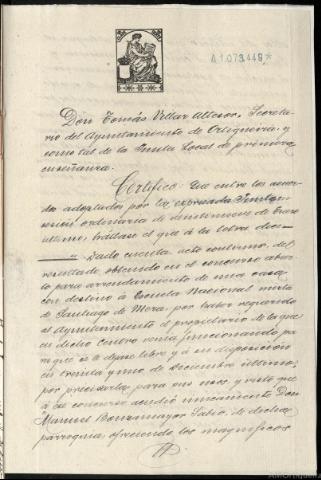 A1073449*
Don Tomás Villar Alteos, Secreta-
rio del Ayuntamiento de Ortigueira y
como tal de la Junta Local de primera
enseñanza.
Certifico: Que entre los acuer-
dos adoptados por la expresada Junta
sesión ordinaria de de Enero
último, hállase el que á la letra dice:
Dado cuenta acto continuo, del
resultado obtenido en el concurso abier-
to para arrendamiento de una casa
con destino á Escuela Nacional mixta
de Santiago de Mera, por haber requerido
al Ayuntamiento el propietario de la que
en dicho Centro venía funcionando, pa-
ra que se le dejase libre y á su disposición
en treinta y uno de Diciembre último,
por precisarla para sus usos, y visto que
á su concurso acudió unicamente Don
Manuel , de dicha
parroquia, ofreciendo los magníficos